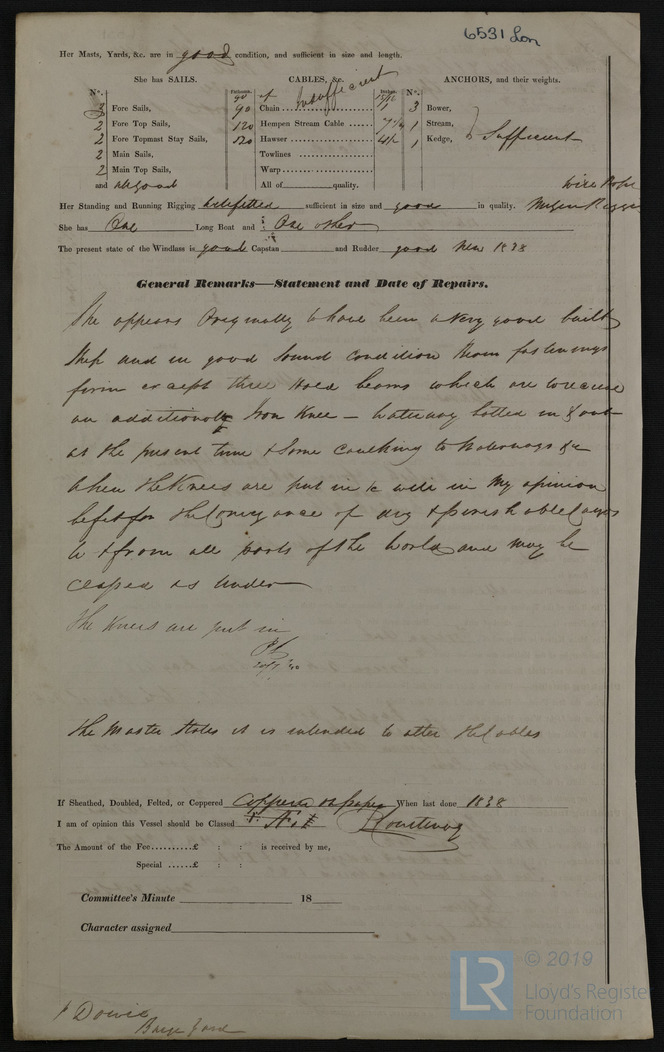 6531 Lon
Her Masts, Yards, &c. are in good condition, and sufficient in size and length.
She has SAILS.
CABLES, &c.
ANCHORS, and their weights.
insufficient
Nº.
Fathoms.
Inches.
Nº.
3 Fore Sails,
90 Chain
3 Bower,
2 Fore Top Sails,
120 Hempen Stream Cable
1 Stream,
2 Fore Topmast Stay Sails,
120 Hawser
4½
1 Kedge,
Sufficient
2 Main Sails,
Towlines
2 Main Top Sails,
Warp
and all good
All of quality.
Wire Rope
Her Standing and Running Rigging sufficient in size and good in quality.
Mizen Riggin
She has One Long Boat and One other
The present state of the Windlass is good Capstan and Rudder good New 1838
General Remarks—Statement and Date of Repairs.
She appears Originally to have been a very good built
Ship and in good Sound Condition Beam fastenings
firm except three Hold beams which are to receive
an additional Iron Knee — Waterway bolted in & out
at the present time & Some Caulking to Waterways &c
When the Knees are put in &c will in My opinion
be fit for the Conveyance of dry & perishable Cargos
to & from all parts of the World and may be
classed as Under
The Knees are put in
The Master States it is intended to alter the Cables
If Sheathed, Doubled, Felted, or Coppered Coppered on paper When last done 1838
I am of opinion this Vessel should be Classed P Courtenay
The Amount of the Fee..........£ : : is received by me,
Special ......£ : :
Committee's Minute 18
Character assigned
LR © 2019
Lloyd's Register
Foundation